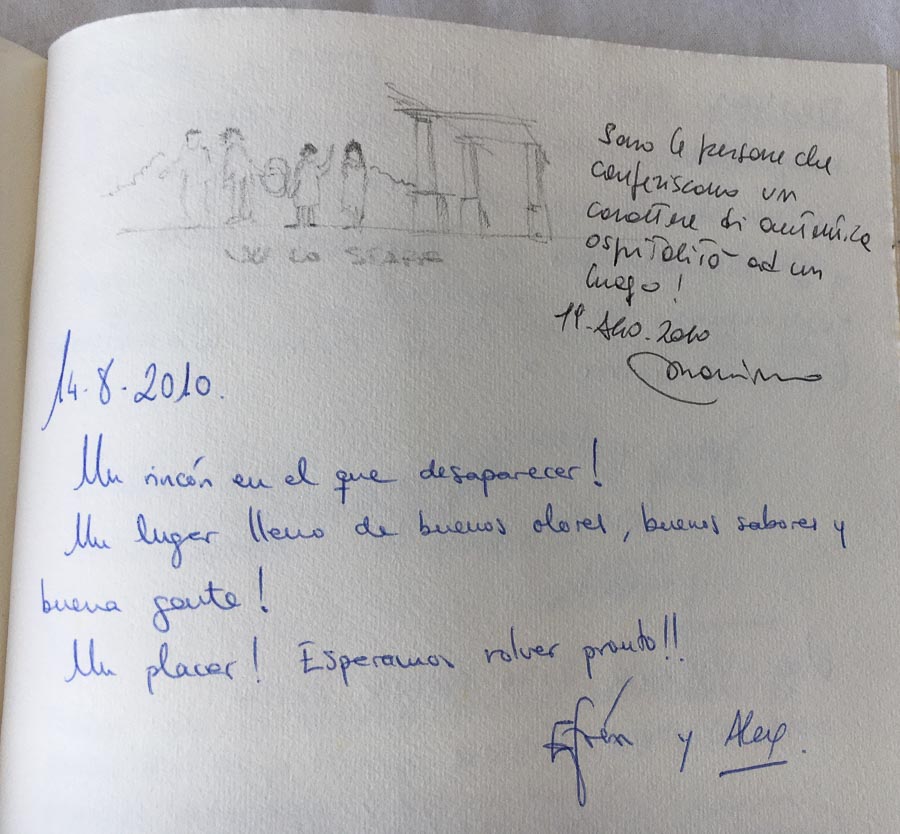 Sono le persone che
conferiscono un
carattere di autentica
ospitalità ad un
luogo!
Ago. 2010
14-8-2010.
Un rincón en el que desaparecer!
Un lugar lleno de buenos olores, buenos sabores y
buena gente!
Un placer! Esperamos volver pronto!!
Efrén y Alex.